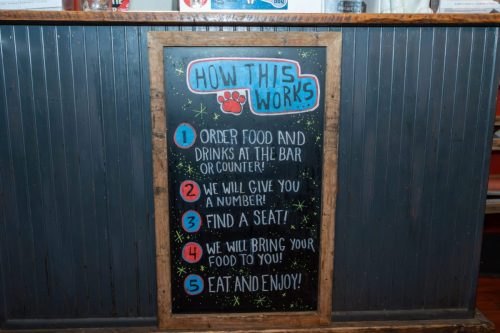 HOW THIS
WORKS
1 ORDER FOOD AND
DRINKS AT THE BAR
OR COUNTER!
2 WE WILL GIVE YOU
A NUMBER!
3 FIND A SEAT!
4 WE WILL BRING YOUR
FOOD TO YOU!
5 EAT AND ENJOY!